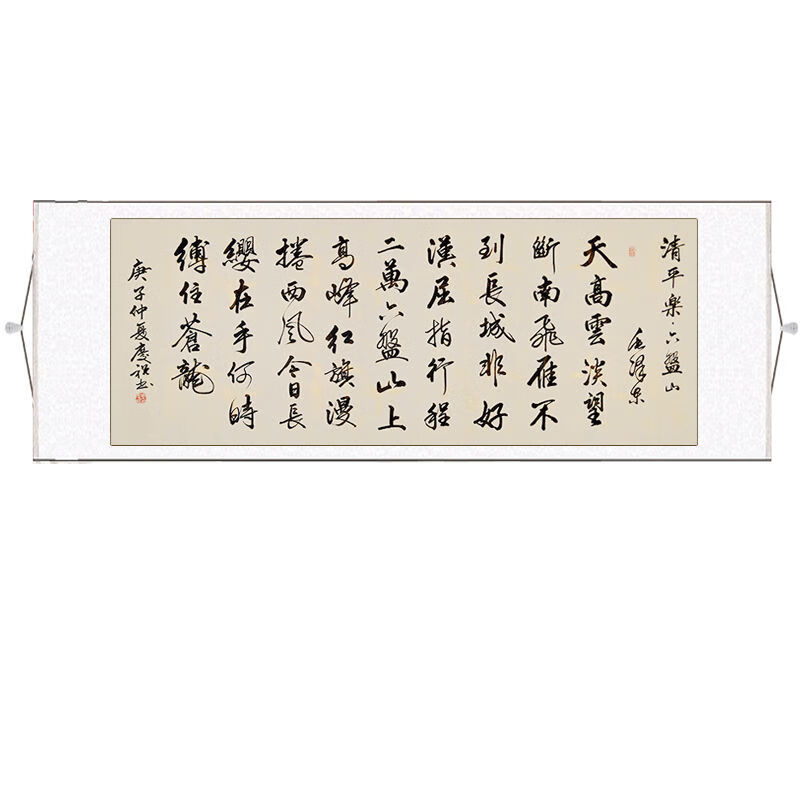 清平樂·六盤山
毛澤東
天高雲淡望
斷南飛雁不
到長城非好
漢屈指行程
二萬六盤山上
高峰紅旗漫
捲西風今日長
纓在手何時
縛住蒼龍
庚子仲夏慶书